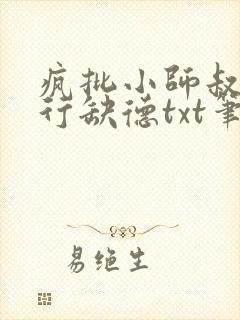 疯批小师叔
行缺德txt笔
易绝生